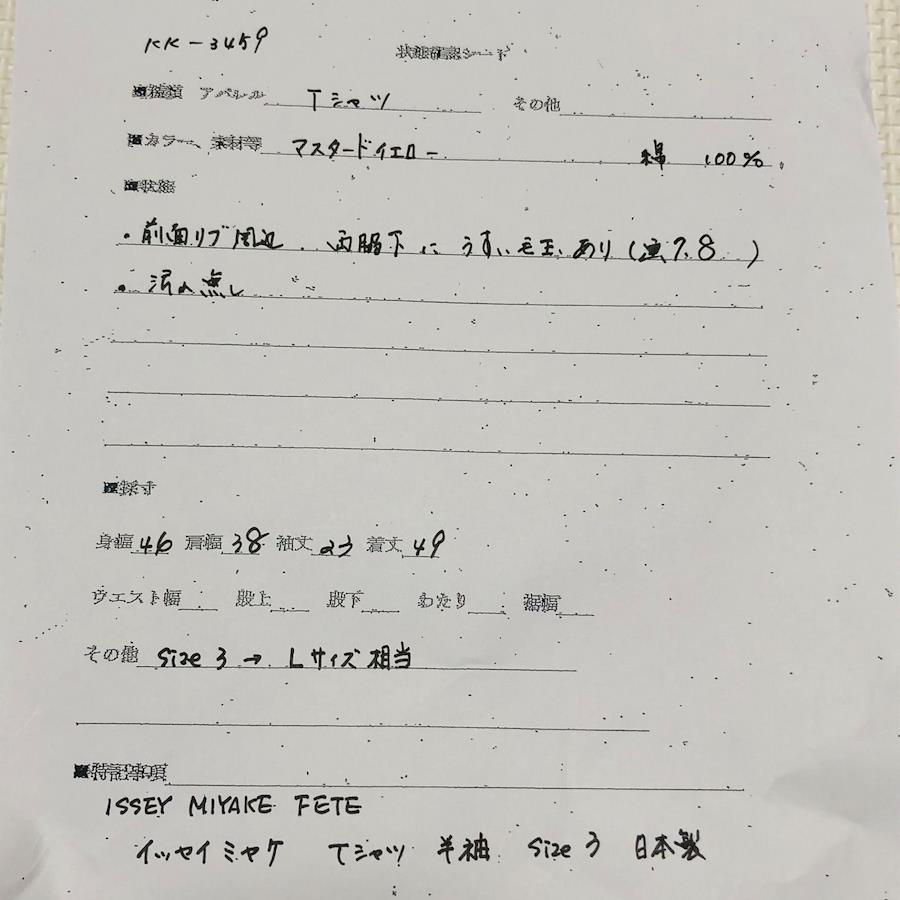 KK-3459
状態確認シート
■種類 アパレル Tシャツ その他
■カラー、素材等 マスタードイエロー 綿 100%
■状態
・前面リブ周辺、両脇下にうすい毛玉あり(画7.8 )
・汚れ無し
■採寸
身幅 46 肩幅 38 袖丈 23 着丈 49
ウエスト幅 股上 股下 わたり 裾幅
その他 Size 3 → Lサイズ相当
■特記事項
ISSEY MIYAKE FETE
イッセイミヤケ Tシャツ 半袖 Size 3 日本製